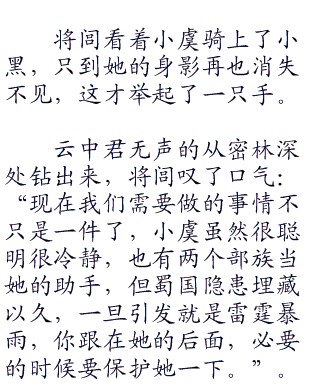 将闾看着小虞骑上了小
黑，只到她的身影再也消失
不见，这才举起了一只手。
云中君无声的从密林深
处钻出来，将闾叹了口气：
“现在我们需要做的事情不
只是一件了，小虞虽然很聪
明很冷静，也有两个部族当
她的助手，但蜀国隐患埋藏
以久，一旦引发就是雷霆暴
雨，你跟在她的后面，必要
的时候要保护她一下。”。